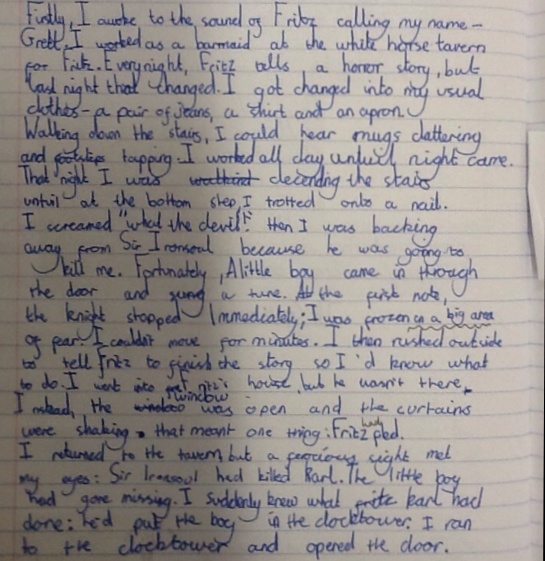 Firstly, I awoke to the sound of Fritz calling my name -
Gretl. I worked as a barmaid at the white horse tavern
for Fritz. Every night, Fritz tells a horror story, but
last night that changed. I got changed into my usual
clothes - a pair of jeans, a shirt and an apron.
Walking down the stairs, I could hear mugs clattering
and footsteps tapping. I worked all day untill night came.
That night I was decending the stairs
untill at the bottom step, I trotted onto a nail.
I screamed "what the devil!" then I was backing
away from Sir Ironsoul because he was going to
kill me. Fortunately, A little boy came in through
the door and sung a tune. At the first note,
the knight stopped Immediately; I was frozen in a big area
of fear. I couldn't move for minutes. I then rushed outside
to tell Fritz to finish the story so I'd know what
to do. I went into Fritz's house, but he wasn't there,
Instead, the window was open and the curtains
were shaking, that meant one thing: Fritz had fled.
I returned to the tavern but a ferocious sight met
my eyes: Sir Ironsoul had killed Karl. The little boy
had gone missing. I suddenly knew what Karl had
done: he'd put the boy in the clocktower. I ran
to the clocktower and opened the door.